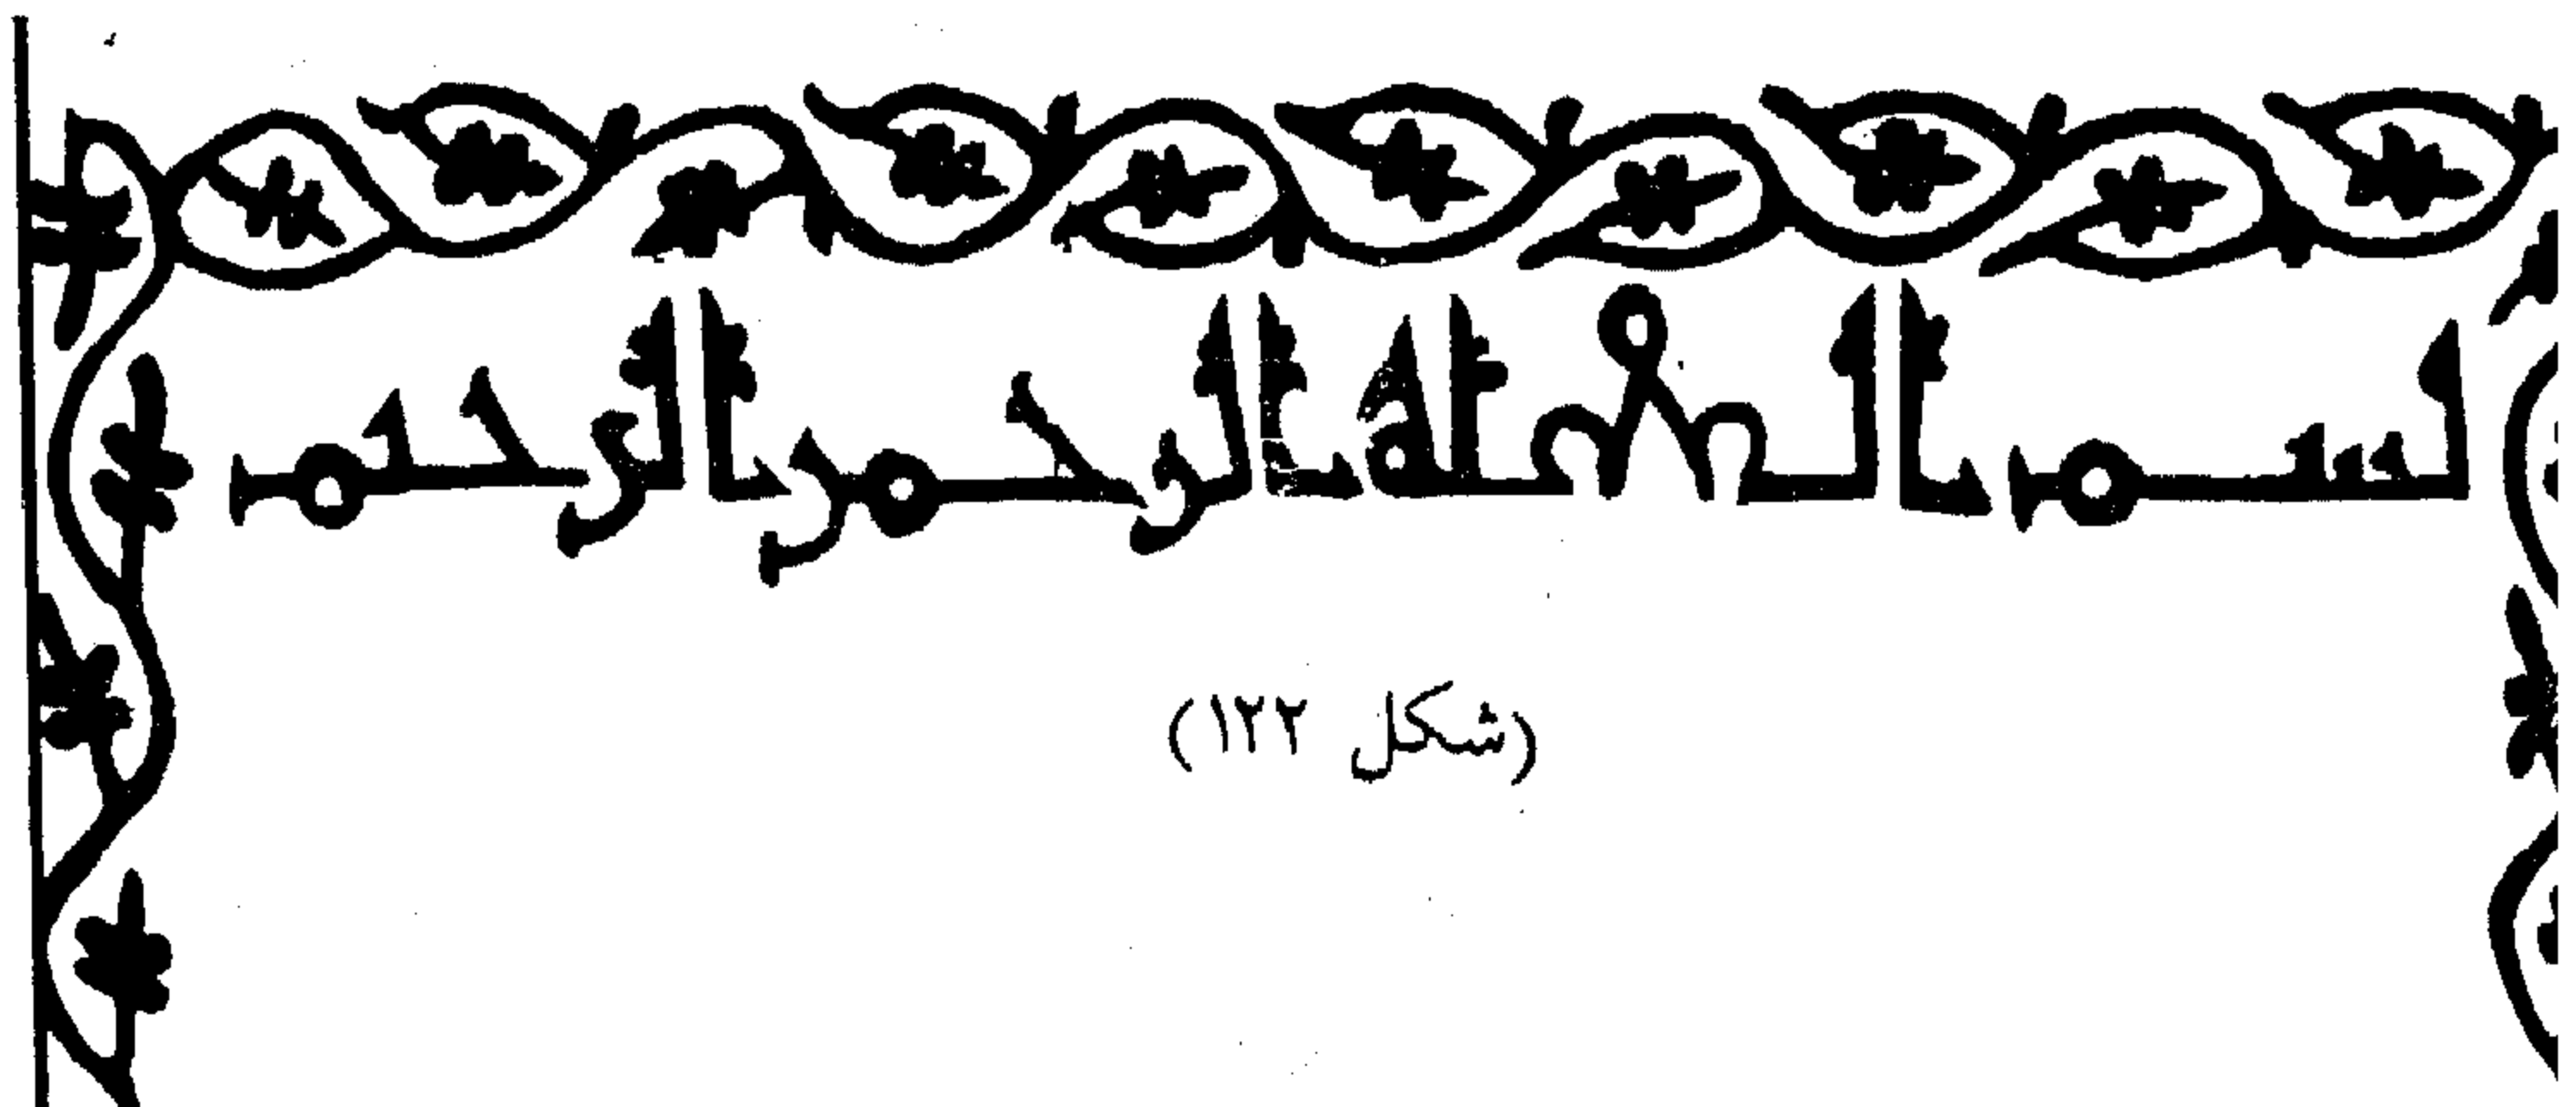 بسم الله الرحمن الرحيم
(شكل ١٢٢)